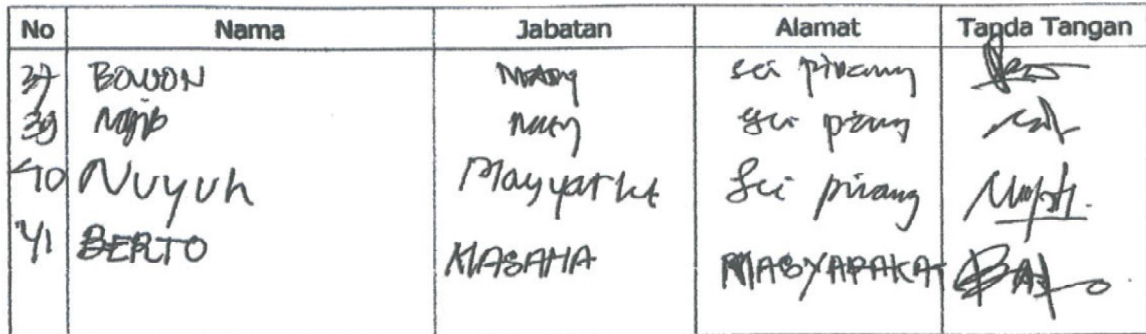 No Nama Jabatan Alamat Tanda Tangan
37 BOWON sei pinang
39 Najib sei pinang
40 Nuyuh Masyarkt Sei pinang
41 BERTO MASAHA MASYARAKAT